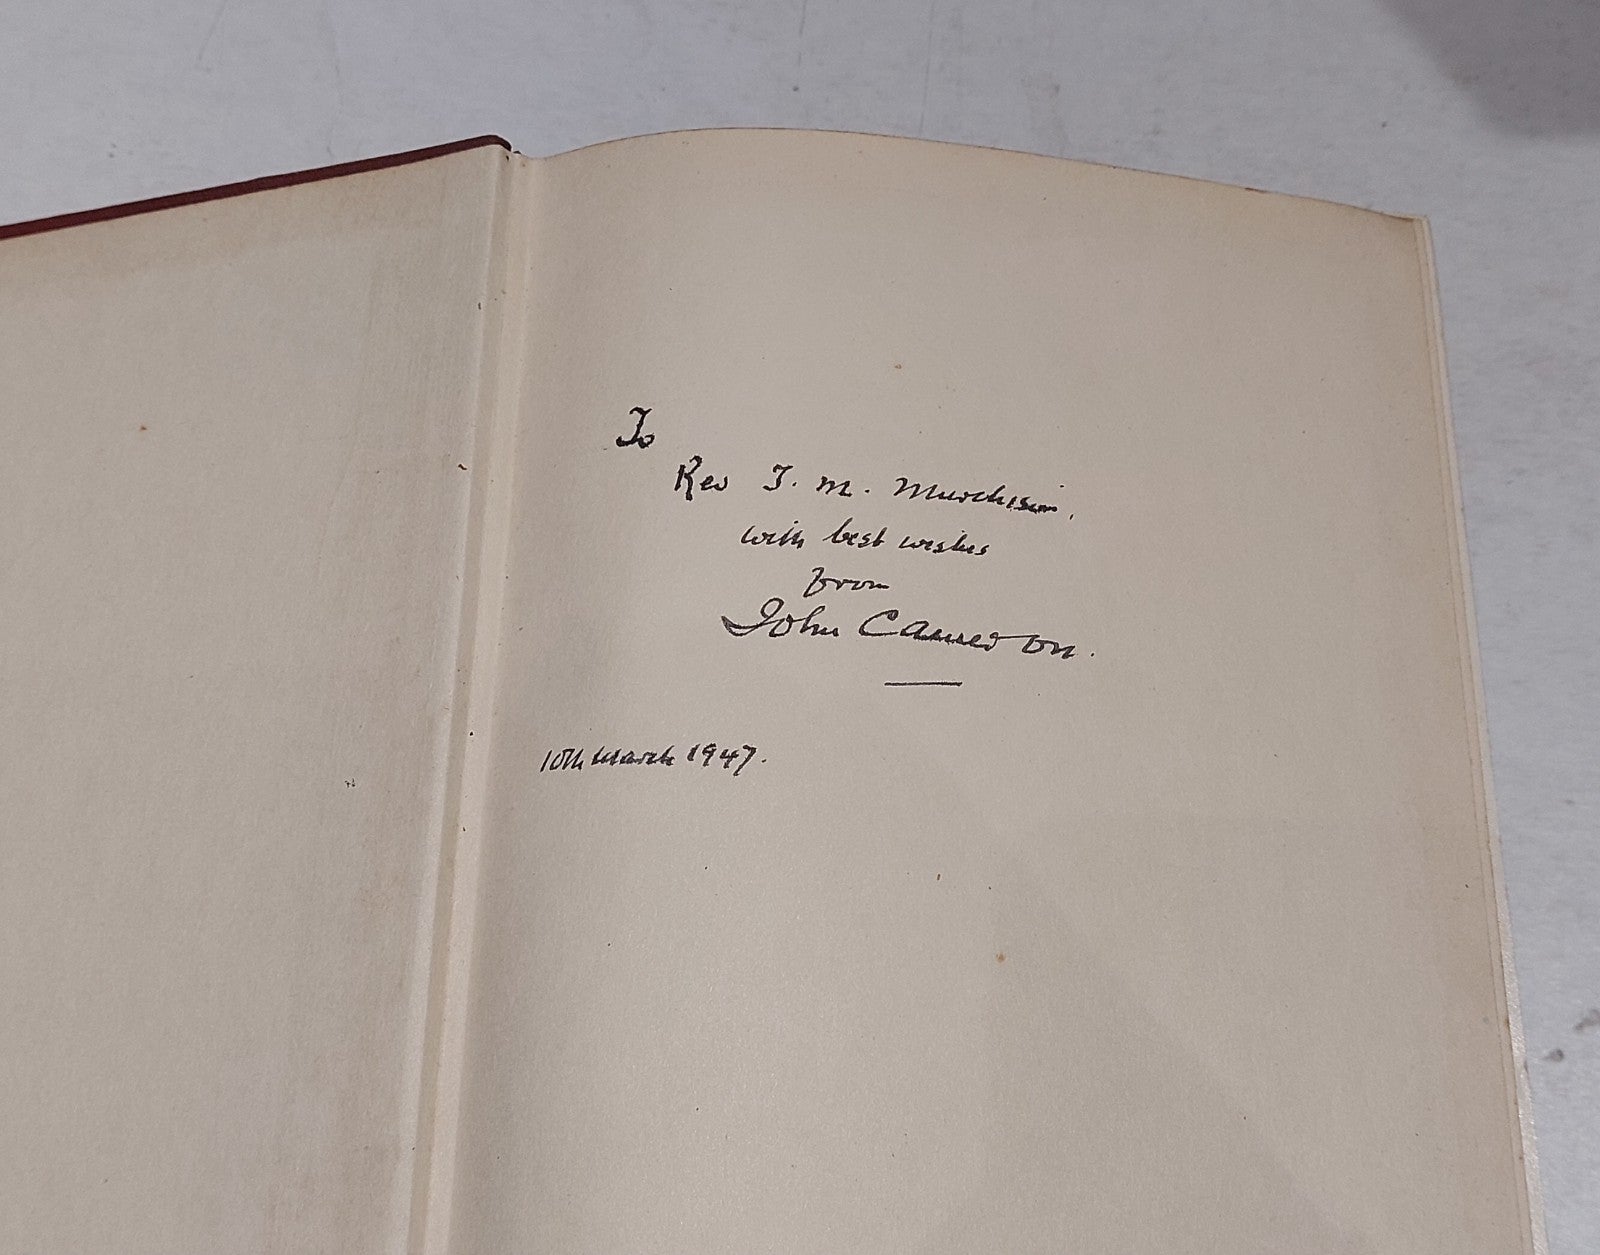 To
Rev T. M. Murchison,
with best wishes
from
John Cameron.
10th March 1947.